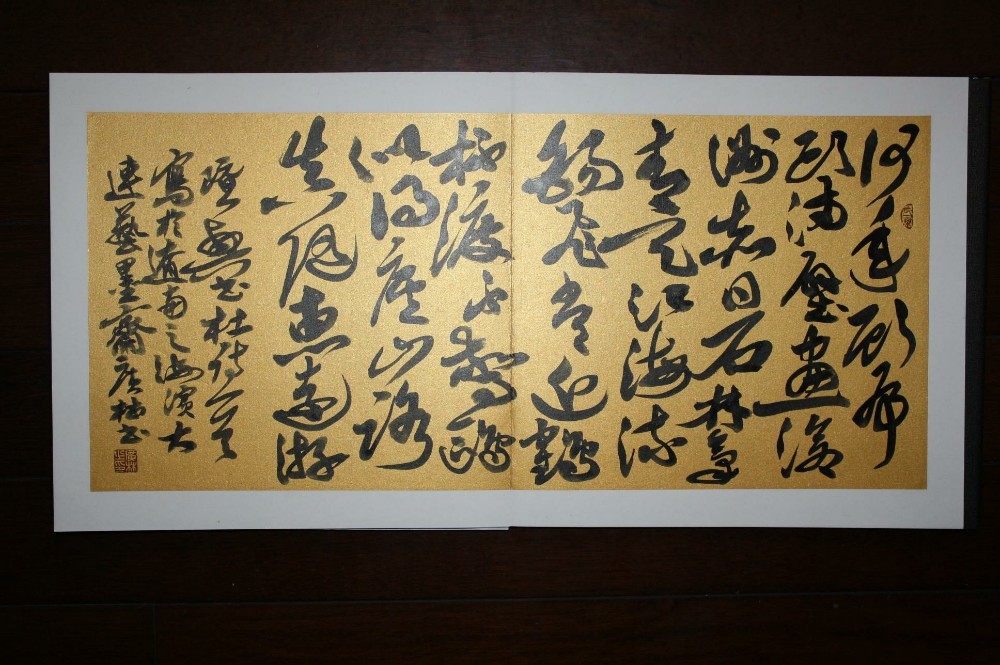 何年顧虎
頭滿壁畫滄
洲赤日石林氣
青天江海流
錫飛常近鶴
杯渡不驚鷗
似得廬山路
真隨惠遠遊
書杜詩一首
寫於遼南之海濱大
連藝墨齋書